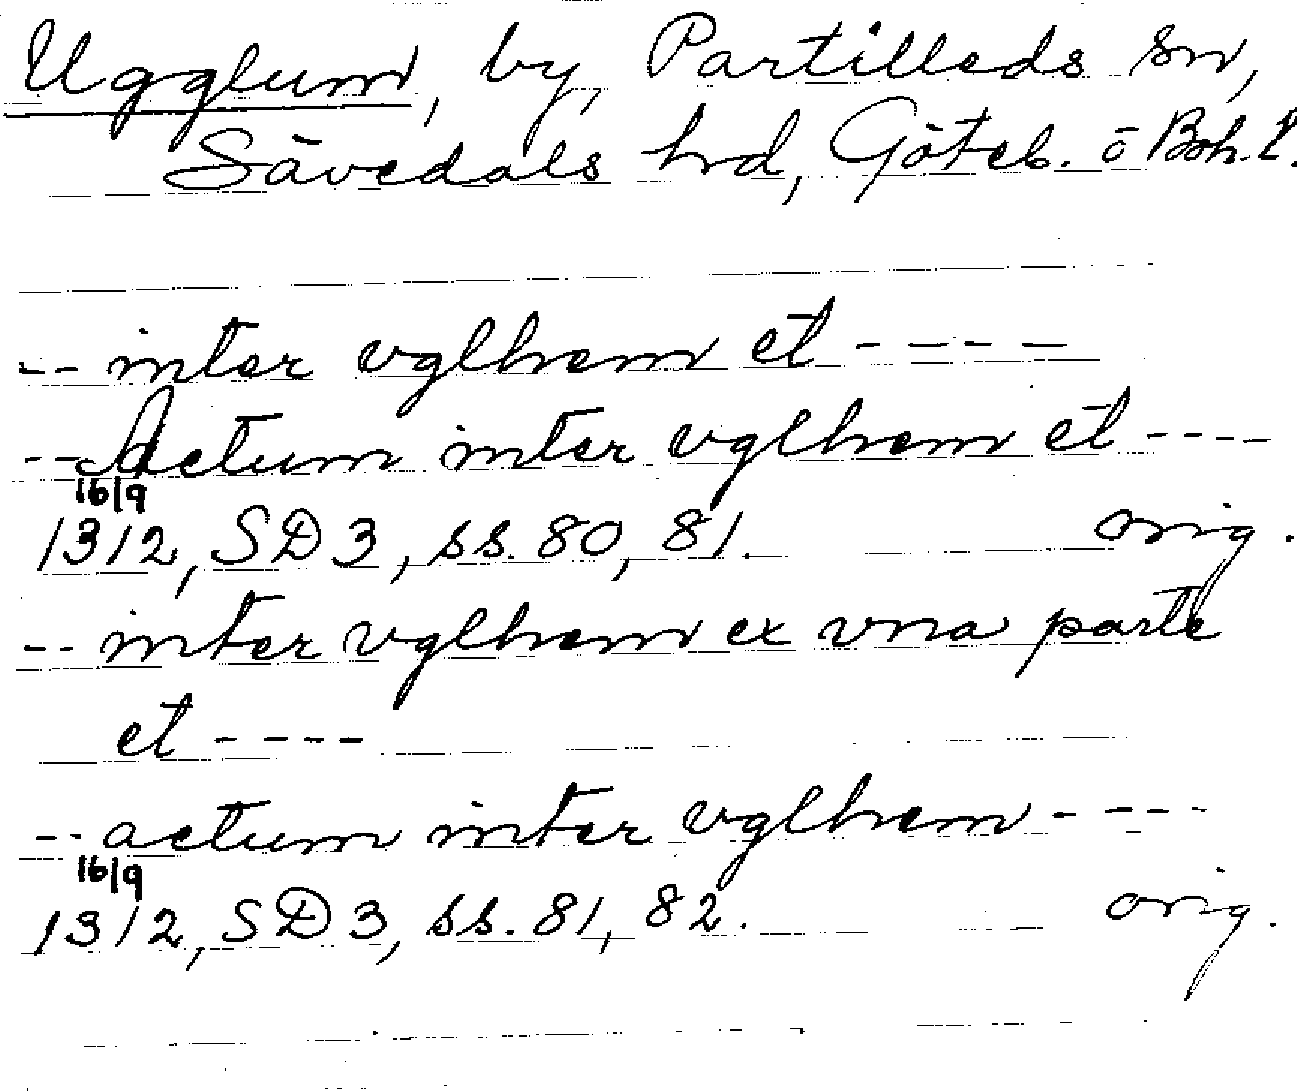 Ugglum, by, Partilleds sn,
Sävedals hrd, Göteb. o Boh. l.
-- inter vglhem et ----
-- Actum inter vglhem et ----
16/9
1312, SD 3, ss. 80, 81. orig.
-- inter vglhem ex vna parte
et ----
-- actum inter vglhem ----
16/9
1312, SD 3, ss. 81, 82. orig.